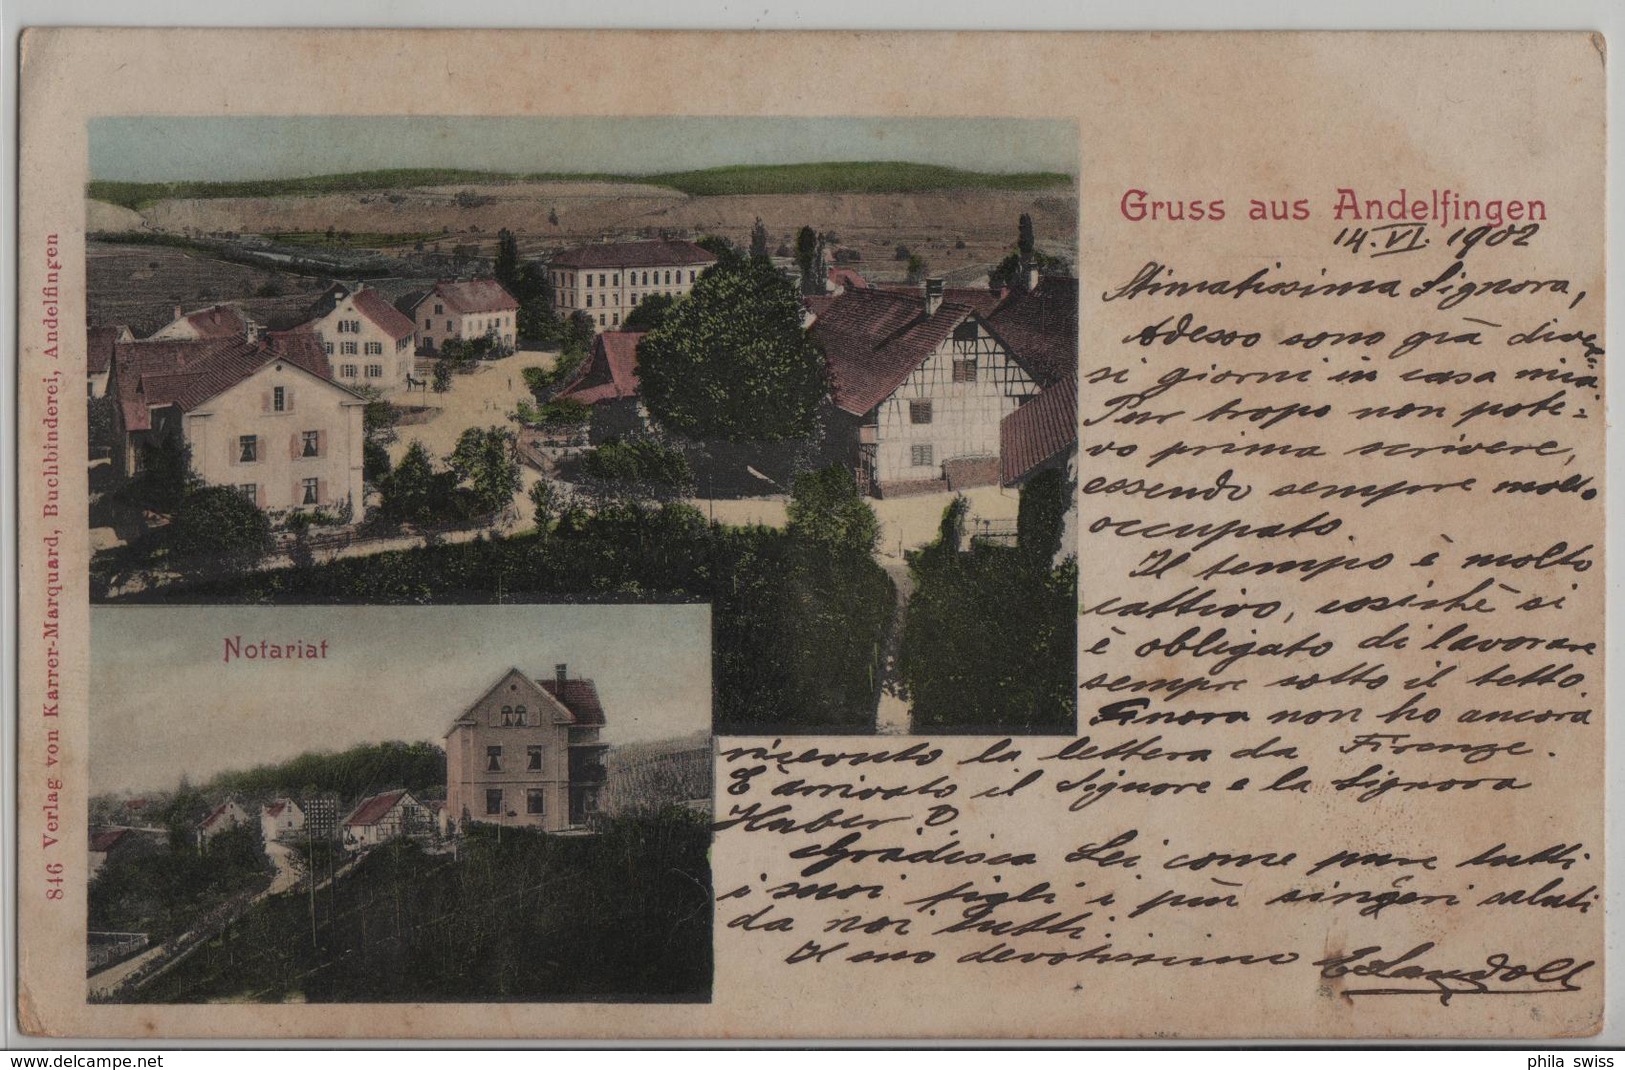 Gruss aus Andelfingen
14. VI. 1902
Stimatissima Signora,
Adesso sono già diver-
si giorni in casa mia
Pur tropo non pote=
vo prima scrivere,
essendo sempre molto
occupato.
Il tempo è molto
cattivo, cosichè si
è obligato di lavorare
sempre sotto il tetto.
Finora non ho ancora
ricevuto la lettera da Firenze.
È arrivato il Signore e la Signora
Huber?
Gradisca Lei come pure tutti
i suoi figli i più sinçeri saluti
da noi tutti.
Il suo devotissimo E Landoll
Notariat
846 Verlag von Karrer-Marquard, Buchbinderei, Andelfingen
www.delcampe.net
phila swiss